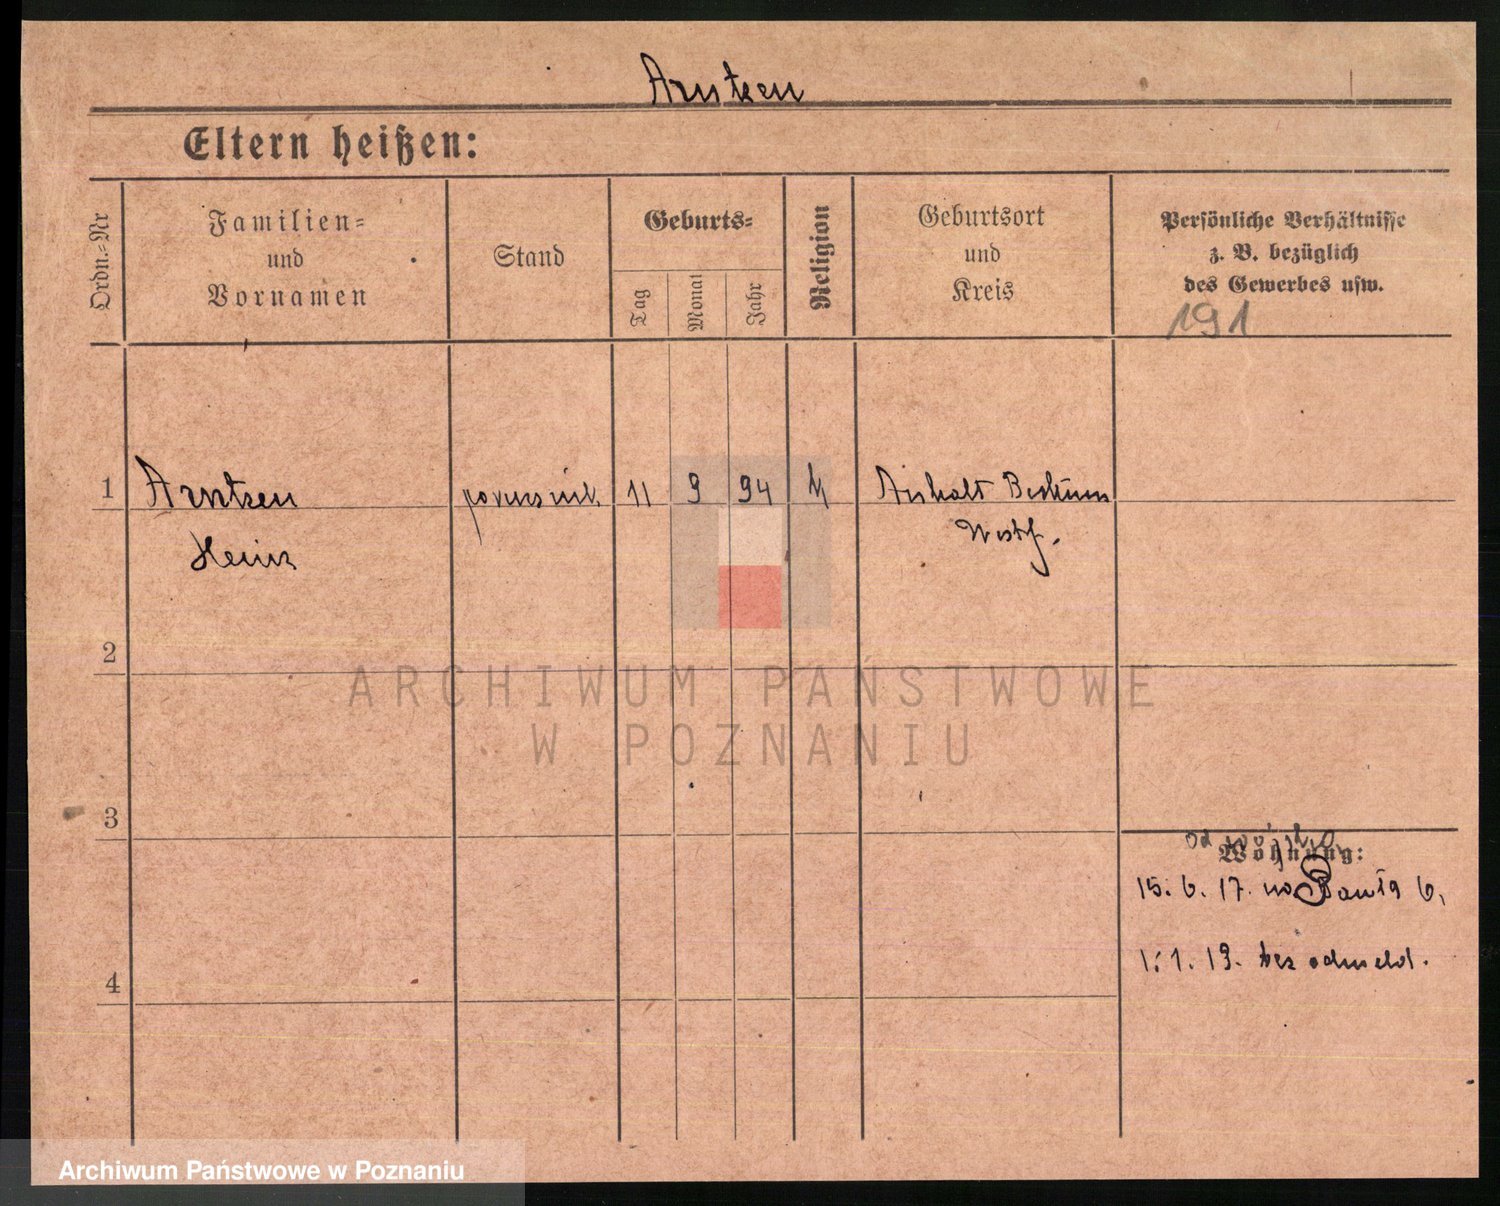 Arntzen
Eltern heißen:
Ordn.=Nr
Familien=
und
Vornamen
Stand
Geburts=
Tag
Monat
Jahr
Religion
Geburtsort
und
Kreis
Persönliche Verhältnisse
z. B. bezüglich
des Gewerbes usw.
191
1 Arntzen 11 9 94 Anholt
Heinz Westf.
2
ARCHIWUM PAŃSTWOWE
W POZNANIU
3
Wohnung:
15. 6. 17.
1. 1. 19. bez odmeld.
4
Archiwum Państwowe w Poznaniu